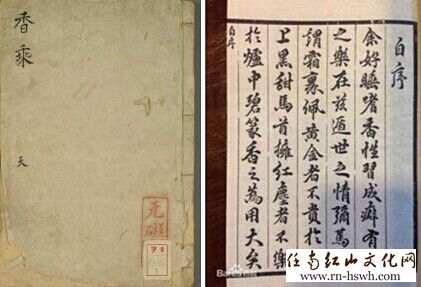 香乘
天
无礙
自序
余好睡嗜香性習成癖有
之樂在兹遁世之情彌篤
謂霜裏佩黃金者不貴於
上黑甜馬首擁紅塵者不樂
於爐中碧篆香之為用大矣
自序
Bai百科
任南红山文化网
www.rn-hswh.com